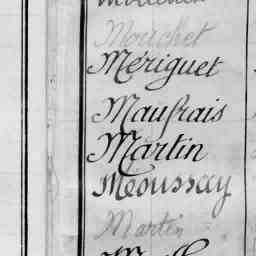 Mouchet
Mériguet
Maufrais
Martin
Moussay
Martin